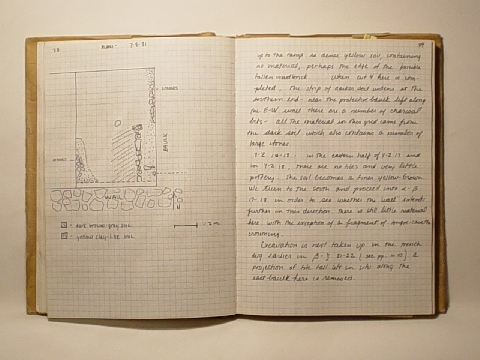 78
PLAN I - 7-8-81
STONES
STONES
BAULK
WALL
= dark brown/grey soil
= yellow clay-like soil
= 2 m.
79
up to the ramp is dense yellow soil, containing
no material, perhaps the edge of the
fallen mudbrick. When cut 4 here is com-
pleted. The strip of darker soil widens at the
southern end - near the protective baulk left along
the E-W wall there are a number of charcoal
bits - all the material in this grid came from
the dark soil which also contains a number of
large stones.
in the eastern half of Y-Z 17 and
in Y-Z 18, there are no tiles and very little
pottery. The soil becomes a finer yellow-brown.
We then to the south and proceed into α-β
17-18 in order to see whether the wall extends
further in this direction. There is still little material
here, with the exception of a fragment of
crowning.
Excavation is next taken up in the trench
dug earlier in β-γ 21-22 (see pp. ) A
projection of the left in situ along the
east baulk here is removed.